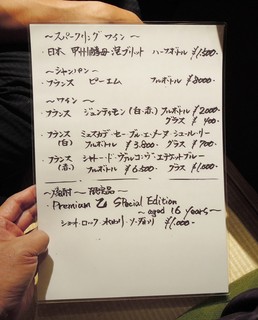 ～スパークリングワイン～
・日本 甲州酵母の泡ブリット ハーフボトル ¥1,500.
～シャンパン～
・フランス ピーエム フルボトル ¥8000-
～ワイン～
・フランス ジュンティモン(白・赤) フルボトル ¥2000
グラス ¥400
フランス ミュスカデ・セーブル・エ・メーヌ・シュール・リー
(白) フルボトル ¥3,800 グラス ¥700
フランス シャトー・ド・ヴァルコンブ・エチケットブルー
(赤) フルボトル ¥6,500 グラス ¥1,000
～焼酎～ 限定品～
・Premium 乙 Special Edition
～aged 16 years～
ショット・ロック・水わり・ソーダわり ¥1,000-